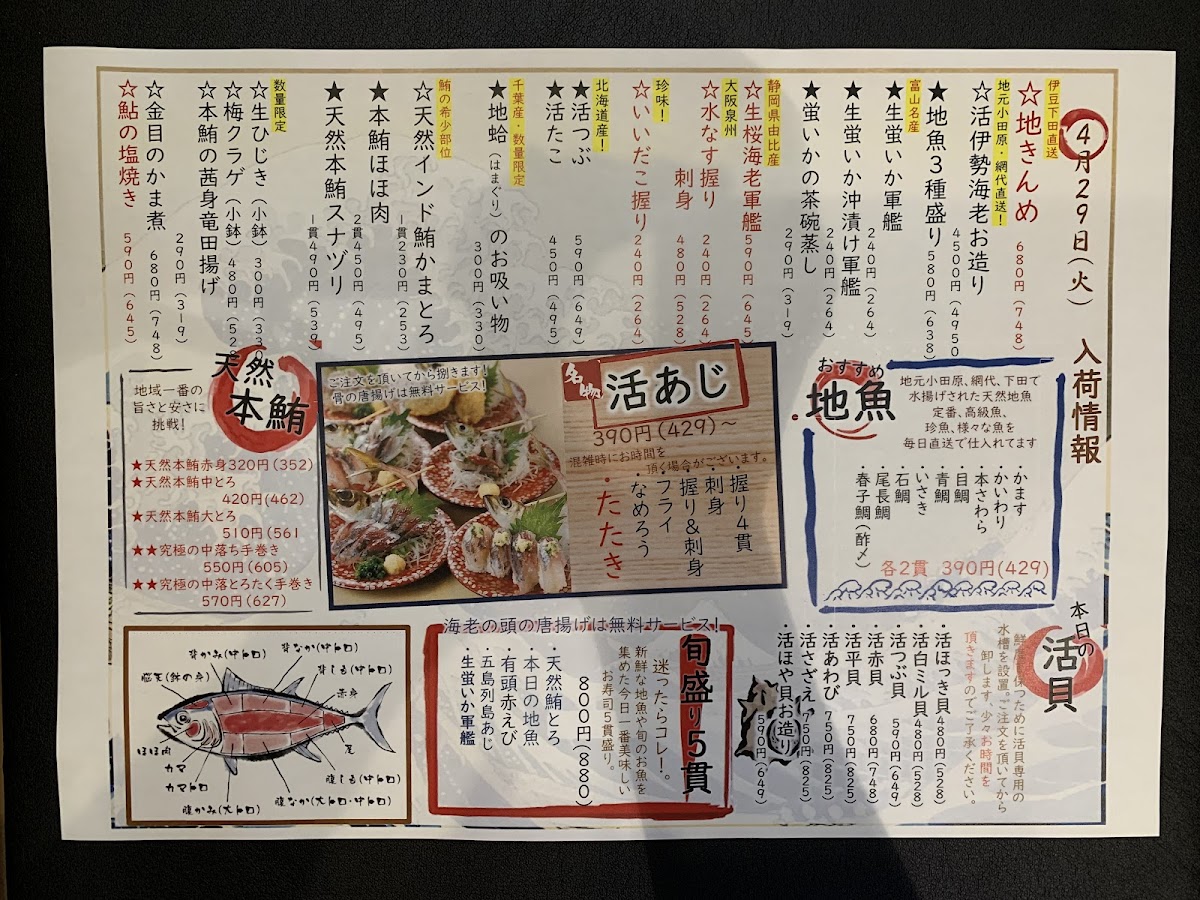 4月29日(火) 入荷情報
伊豆下田直送
☆地きんめ 680円(748)
地元小田原・網代直送!
☆活伊勢海老お造り 4500円(4950
★地魚3種盛り 580円(638)
富山名産
★生蛍いか軍艦 240円(264)
★生蛍いか沖漬け軍艦 240円(264)
★蛍いかの茶碗蒸し 290円(319)
静岡県由比産
☆生桜海老軍艦 590円(645)
大阪泉州
☆水なす握り 240円(264)
刺身 480円(528)
珍味!
☆いいだこ握り 240円(264)
北海道産!
★活つぶ 590円(649)
★活たこ 450円(495)
千葉産・数量限定
★地蛤(はまぐり)のお吸い物 300円(330)
鮪の希少部位
☆天然インド鮪かまとろ 一貫230円(253)
★本鮪ほほ肉 2貫450円(495)
★天然本鮪スナヅリ 一貫490円(539)
数量限定
☆生ひじき(小鉢) 300円(330
☆梅クラゲ(小鉢) 480円(528
☆本鮪の茜身竜田揚げ 290円(319)
☆金目のかま煮 680円(748)
☆鮎の塩焼き 590円(645)
おすすめ
地魚
地元小田原、網代、下田で
水揚げされた天然地魚
定番、高級魚、
珍魚、様々な魚を
毎日直送で仕入れてます
・かます
・かいわり
・本さわら
・目鯛
・青鯛
・いさき
・石鯛
・尾長鯛
・春子鯛(酢〆)
各2貫 390円(429)
ご注文を頂いてから捌きます!
骨の唐揚げは無料サービス!
名物
活あじ
390円(429)~
混雑時にお時間を
頂く場合がございます。
・握り4貫
・刺身
・握り&刺身
・フライ
・なめろう
・たたき
天然
本鮪
地域一番の
旨さと安さに
挑戦!
★天然本鮪赤身320円(352)
★天然本鮪中とろ
420円(462)
★天然本鮪大とろ
510円(561
★★究極の中落ち手巻き
550円(605)
★★究極の中落とろたく手巻き
570円(627)
本日の
活貝
鮮度を保つために活貝専用の
水槽を設置。ご注文を頂いてから
卸します、少々お時間を
頂きますのでご了承ください。
・活ほっき貝 480円(528)
・活白ミル貝 480円(528)
・活つぶ貝 590円(649)
・活赤貝 680円(748)
・活平貝 750円(825)
・活あわび 750円(825)
・活さざえ 750円(825)
・活ほや貝お造り 590円(649)
海老の頭の唐揚げは無料サービス!
旬盛り5貫
迷ったらコレ!。
新鮮な地魚や旬のお魚を
集めた今日一番美味しい
お寿司5貫盛り。
800円(880)
・天然鮪とろ
・本日の地魚
・有頭赤えび
・五島列島あじ
・生蛍いか軍艦
背かみ(中トロ)
背なか(中トロ)
背しも(中トロ)
脳天(鉢の身)
赤身
ほほ肉
カマ
カマトロ
尾
腹しも(中トロ)
腹なか(大トロ・中トロ)
腹かみ(大トロ)